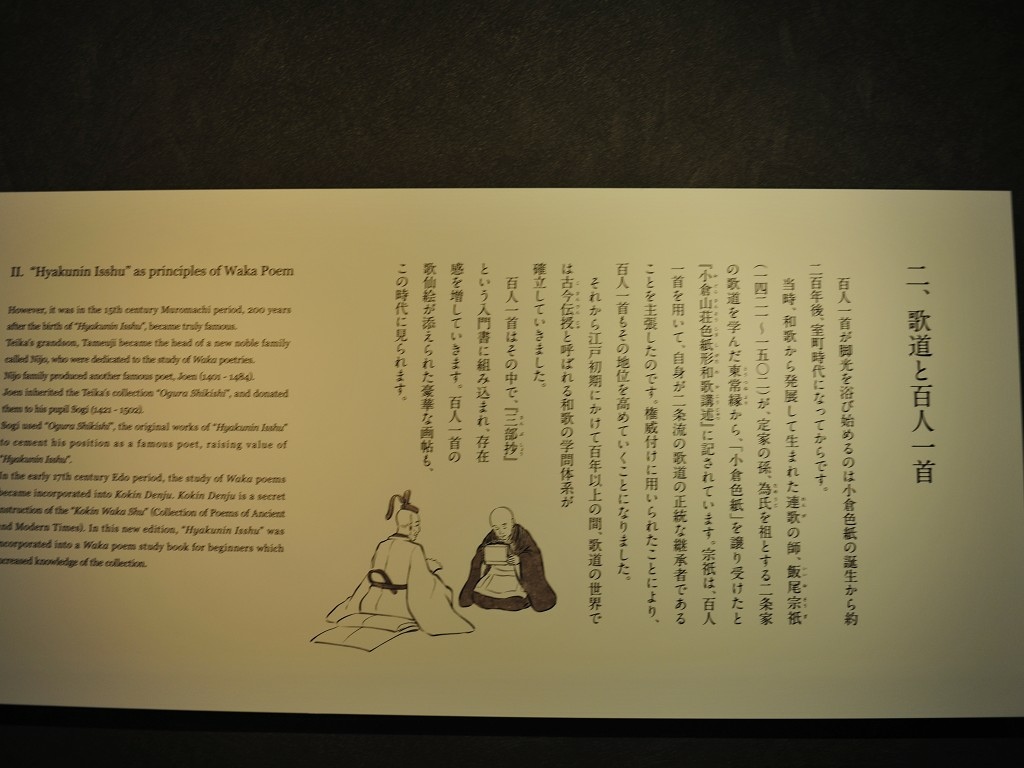 二、歌道と百人一首
百人一首が脚光を浴び始めるのは小倉色紙の誕生から約
二百年後、室町時代になってからです。
当時、和歌から発展して生まれた連歌の師、飯尾宗祇
(一四二一〜一五〇二)が、定家の孫 為氏を祖とする二条家
の歌道を学んだ東常縁から、「小倉色紙」を譲り受けたと
『小倉山荘色紙形和歌講述』に記されています。宗祇は、百人
一首を用いて、自身が二条流の歌道の正統な継承者である
ことを主張したのです。権威付けに用いられたことにより、
百人一首もその地位を高めていくことになりました。
それから江戸初期にかけて百年以上の間、歌道の世界で
は古今伝授と呼ばれる和歌の学問体系が
確立していきました。
百人一首はその中で、『三部抄』
という入門書に組み込まれ、存在
感を増していきます。百人一首の
歌仙絵が添えられた豪華な画帖も、
この時代に見られます。
II. "Hyakunin Isshu" as principles of Waka Poem
However, it was in the 15th century Muromachi period, 200 years
after the birth of "Hyakunin Isshu", became truly famous.
Teika's grandson, Tameuji became the head of a new noble family
called Nijo, who were dedicated to the study of Waka poetries.
Nijo family produced another famous poet, Joen (1401 - 1484).
Joen inherited the Teika's collection "Ogura Shikishi", and donated
them to his pupil Sogi (1421 - 1502).
Sogi used "Ogura Shikishi", the original works of "Hyakunin Isshu"
to cement his position as a famous poet, raising value of
"Hyakunin Isshu".
In the early 17th century Edo period, the study of Waka poems
became incorporated into Kokin Denju. Kokin Denju is a secret
nstruction of the "Kokin Waka Shu" (Collection of Poems of Ancient
and Modern Times). In this new edition, "Hyakunin Isshu" was
ncorporated into a Waka poem study book for beginners which
ncreased knowledge of the collection.